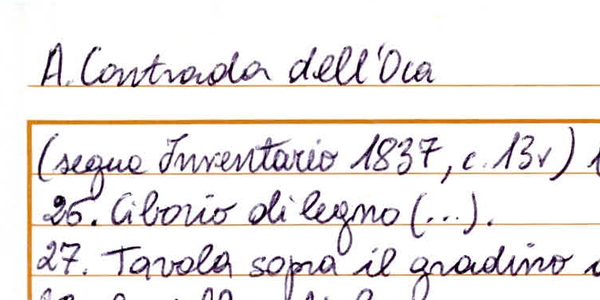 A. Contrada dell'Oca
(segue Inventario 1837, c. 13v)
26. Ciborio di legno (...).
27. Tavola sopra il gradino